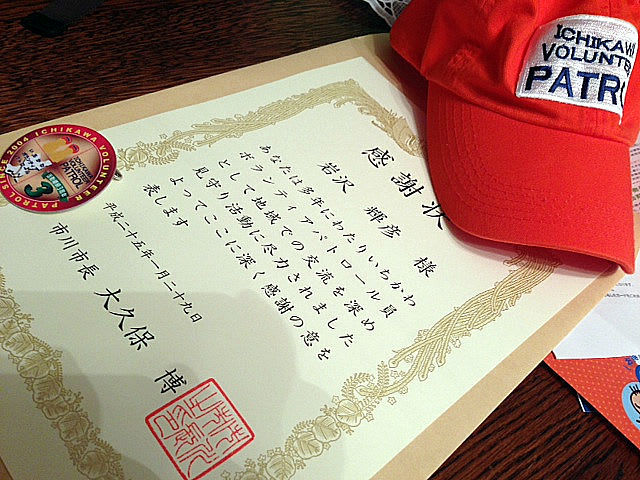 感謝状
岩沢 輝彦 様
あなたは多年にわたりいちかわ
ボランティアパトロール員
として地域での交流を深め
見守り活動に尽力されました
よってここに深く感謝の意を
表します
平成二十五年一月二十九日
市川市長 大久保 博
ICHIKAWA
VOLUNTE
PATRO
PATROL SINCE 2004 ICHIKAWA VOLUNTEER
PATROL
3